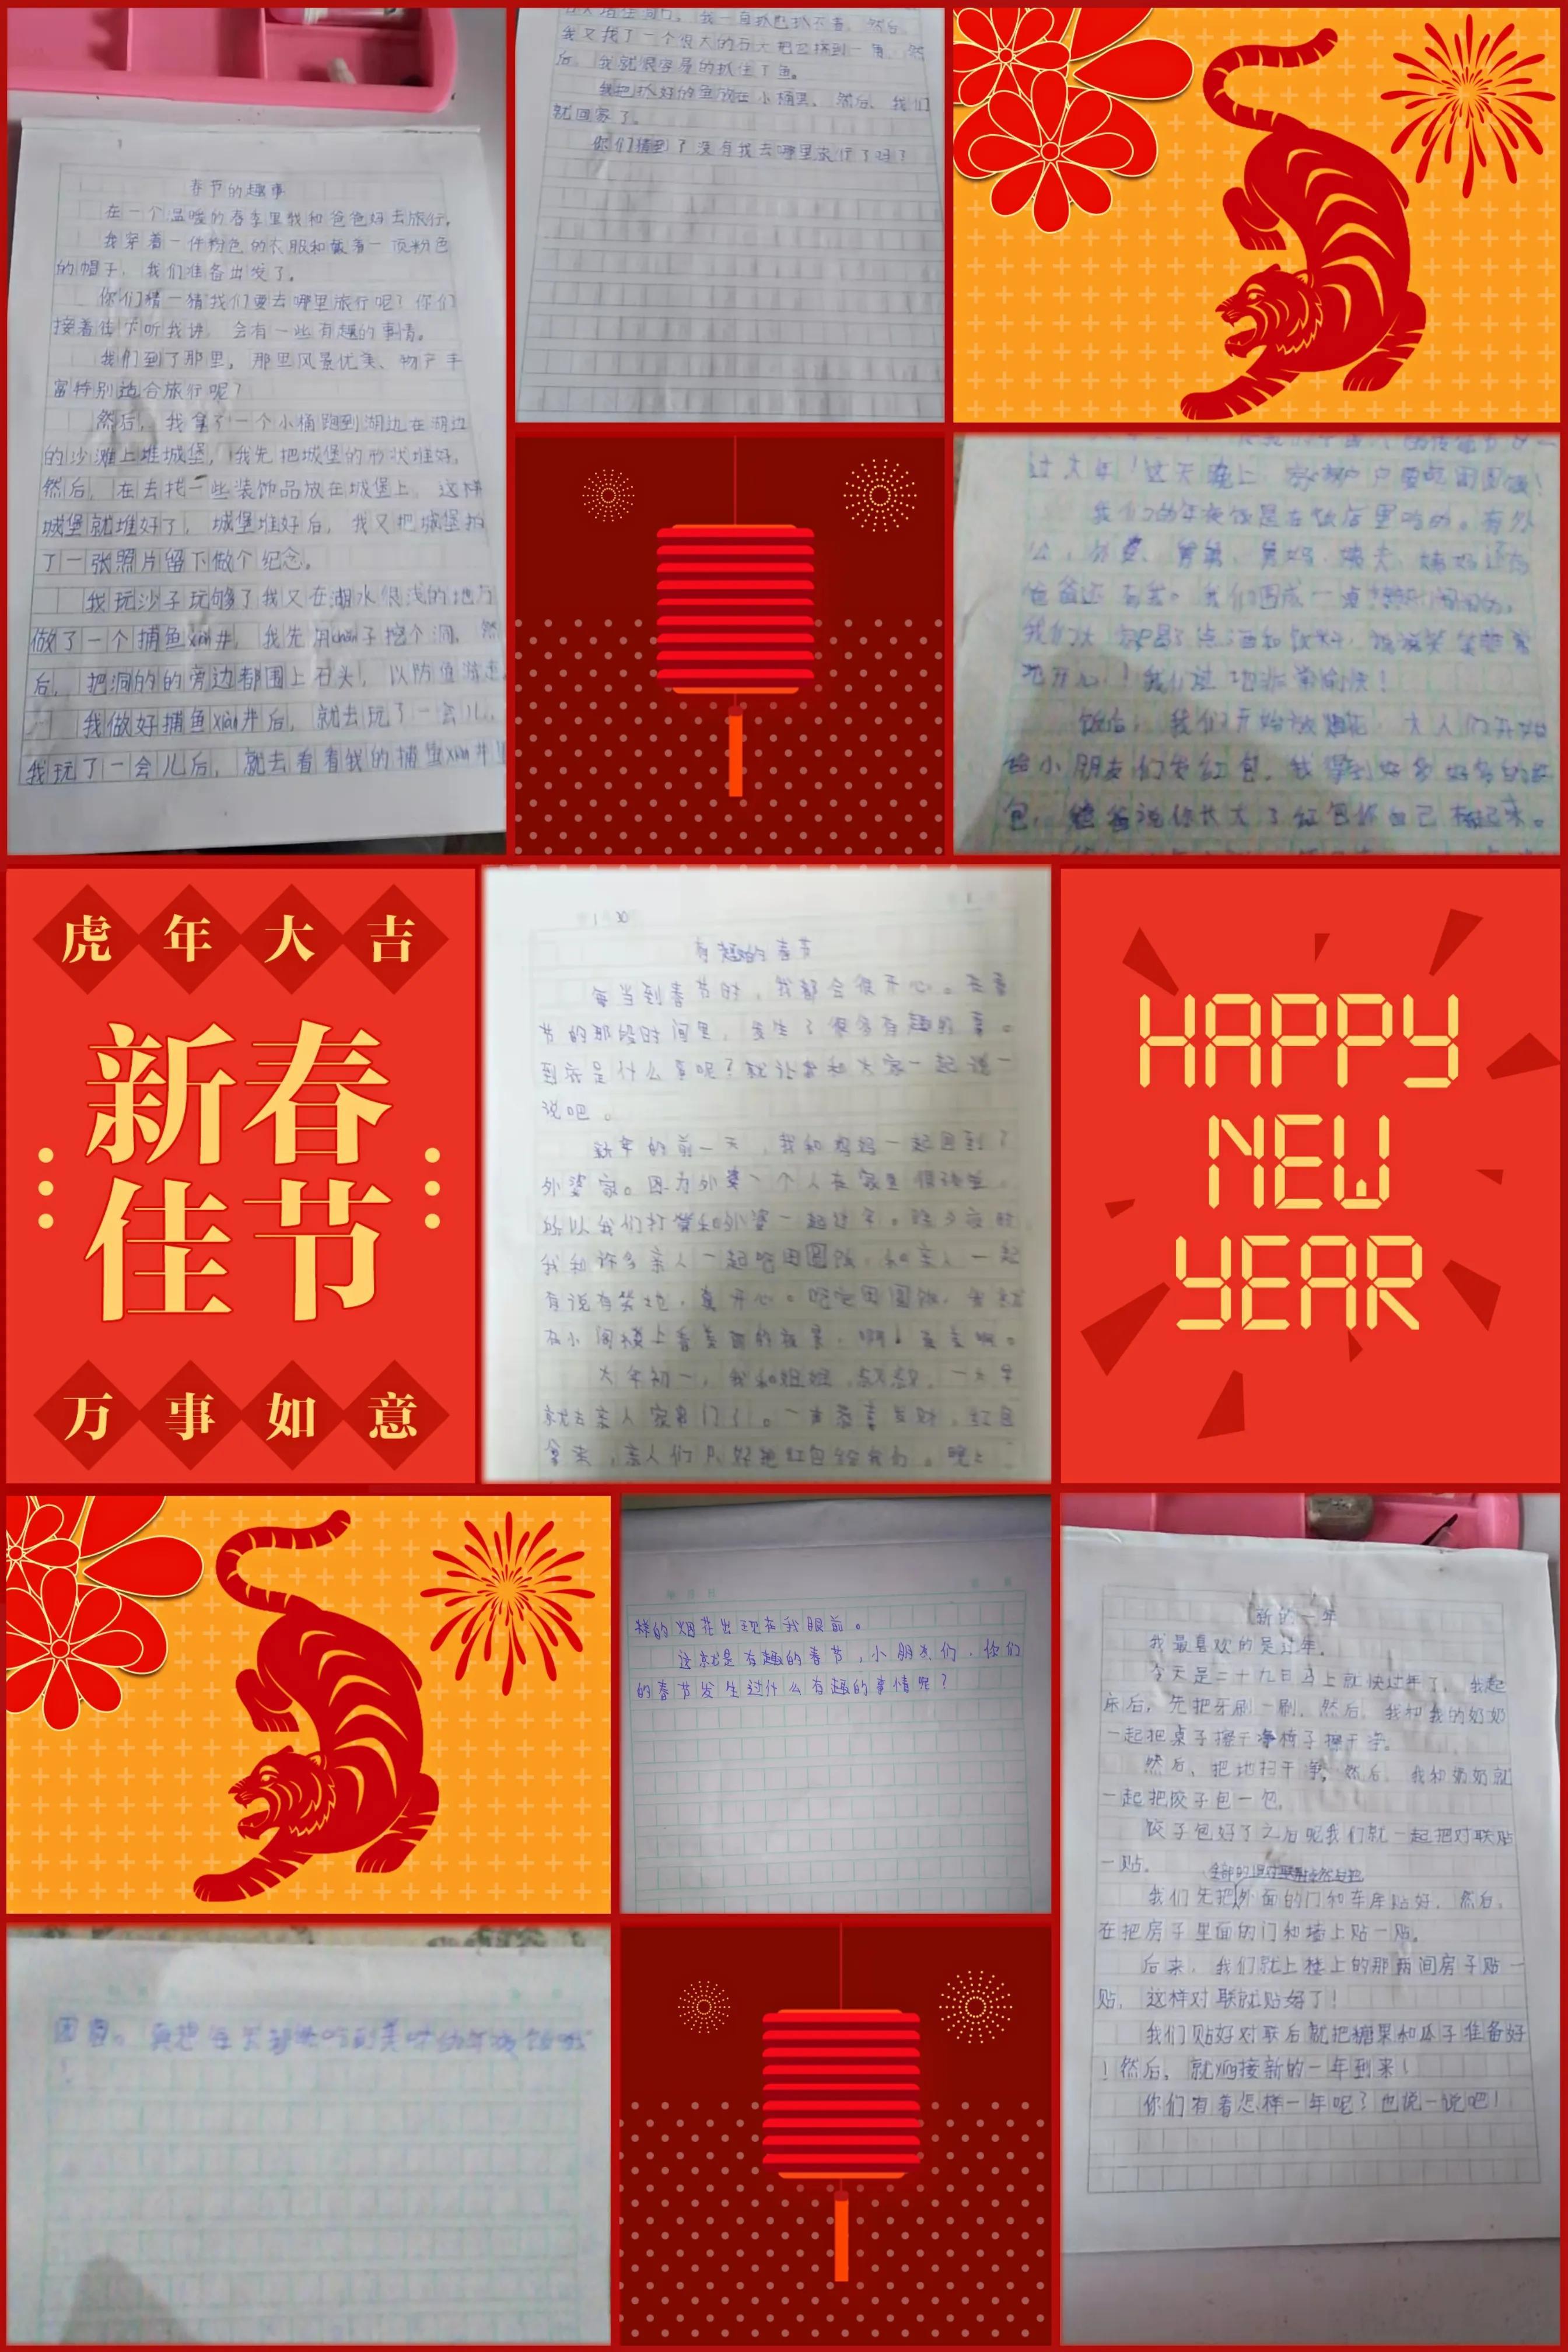 春节的趣事
在一个温暖的春季里我和爸爸好去旅行。
我穿着一件粉色的衣服和戴着一顶粉色
的帽子，我们准备出发了。
你们猜一猜我们要去哪里旅行呢？你们
接着往下听我讲，会有一些有趣的事情。
我们到了那里，那里风景优美、物产丰
富特别适合旅行呢？
然后，我拿了一个小桶跑到湖边在湖边
的沙滩上堆城堡，我先把城堡的形状堆好，
然后，在去找一些装饰品放在城堡上，这样
城堡就堆好了，城堡堆好后，我又把城堡拍
了一张照片留下做个纪念。
我玩沙子玩够了我又在湖水很浅的地方
做了一个捕鱼xiàn井，我先用chǎn子挖个洞，然
后，把洞的的旁边都围上石头，以防鱼游走
我做好捕鱼xiàn井后，就去玩了一会儿，
我玩了一会儿后，就去看看我的捕鱼xiàn井里
我又找了一个很大的石头把它挤到一角，然
后，我就很容易的抓住了鱼。
我把抓好的鱼放在小桶里，然后，我们
就回家了。
你们猜到了没有我去哪里旅行了吗？
过大年！这天晚上，家家户户要吃团圆饭！
我们的年夜饭是在饭店里吃的。有外
公、外婆、舅舅、舅妈、
爸爸还有我。我们围成一桌
饭后，我们开始放烟花，大人们开始
给小朋友们发红包，我得到好多好多的红
包，爸爸说你长大了红包你自己存起来。
虎年大吉
新春
佳节
万事如意
有趣的春节
每当到春节时，我都会很开心。在春
节的那段时间里，发生了很多有趣的事。
到底是什么事呢？就让我和大家一起说一
说吧。
新年的前一天，我和妈妈一起回到了
外婆家。因为外婆一个人在家里很孤单，
所以我们打算和外婆一起过年。除夕夜时，
我和许多亲人一起吃团圆饭，和亲人一起
有说有笑地，真开心。吃完团圆饭，我就
在小阁楼上看美丽的夜景，啊！真美啊。
大年初一，我和姐姐、叔叔，一大早
就去亲人家串门了。一声恭喜发财，红包
拿来，亲人们只好把红包给我们。晚上
HAPPY
NEW
YEAR
样的烟花出现在我眼前。
这就是有趣的春节，小朋友们，你们
的春节发生过什么有趣的事情呢？
新的一年
我最喜欢的是过年。
今天是二十九日马上就快过年了，我起
床后，先把牙刷一刷，然后，我和我的奶奶
一起把桌子擦干净椅子擦干净。
然后，把地扫干净，然后，我和奶奶就
一起把饺子包一包，
饺子包好了之后呢我们就一起把对联贴
一贴。
我们先把外面的门和车库贴好，然后，
在把房子里面的门和墙上贴一贴。
后来，我们就上楼上的那两间房子贴一
贴，这样对联就贴好了！
我们贴好对联后就把糖果和瓜子准备好
！然后，就迎接新的一年到来！
你们有着怎样一年呢？也说一说吧！